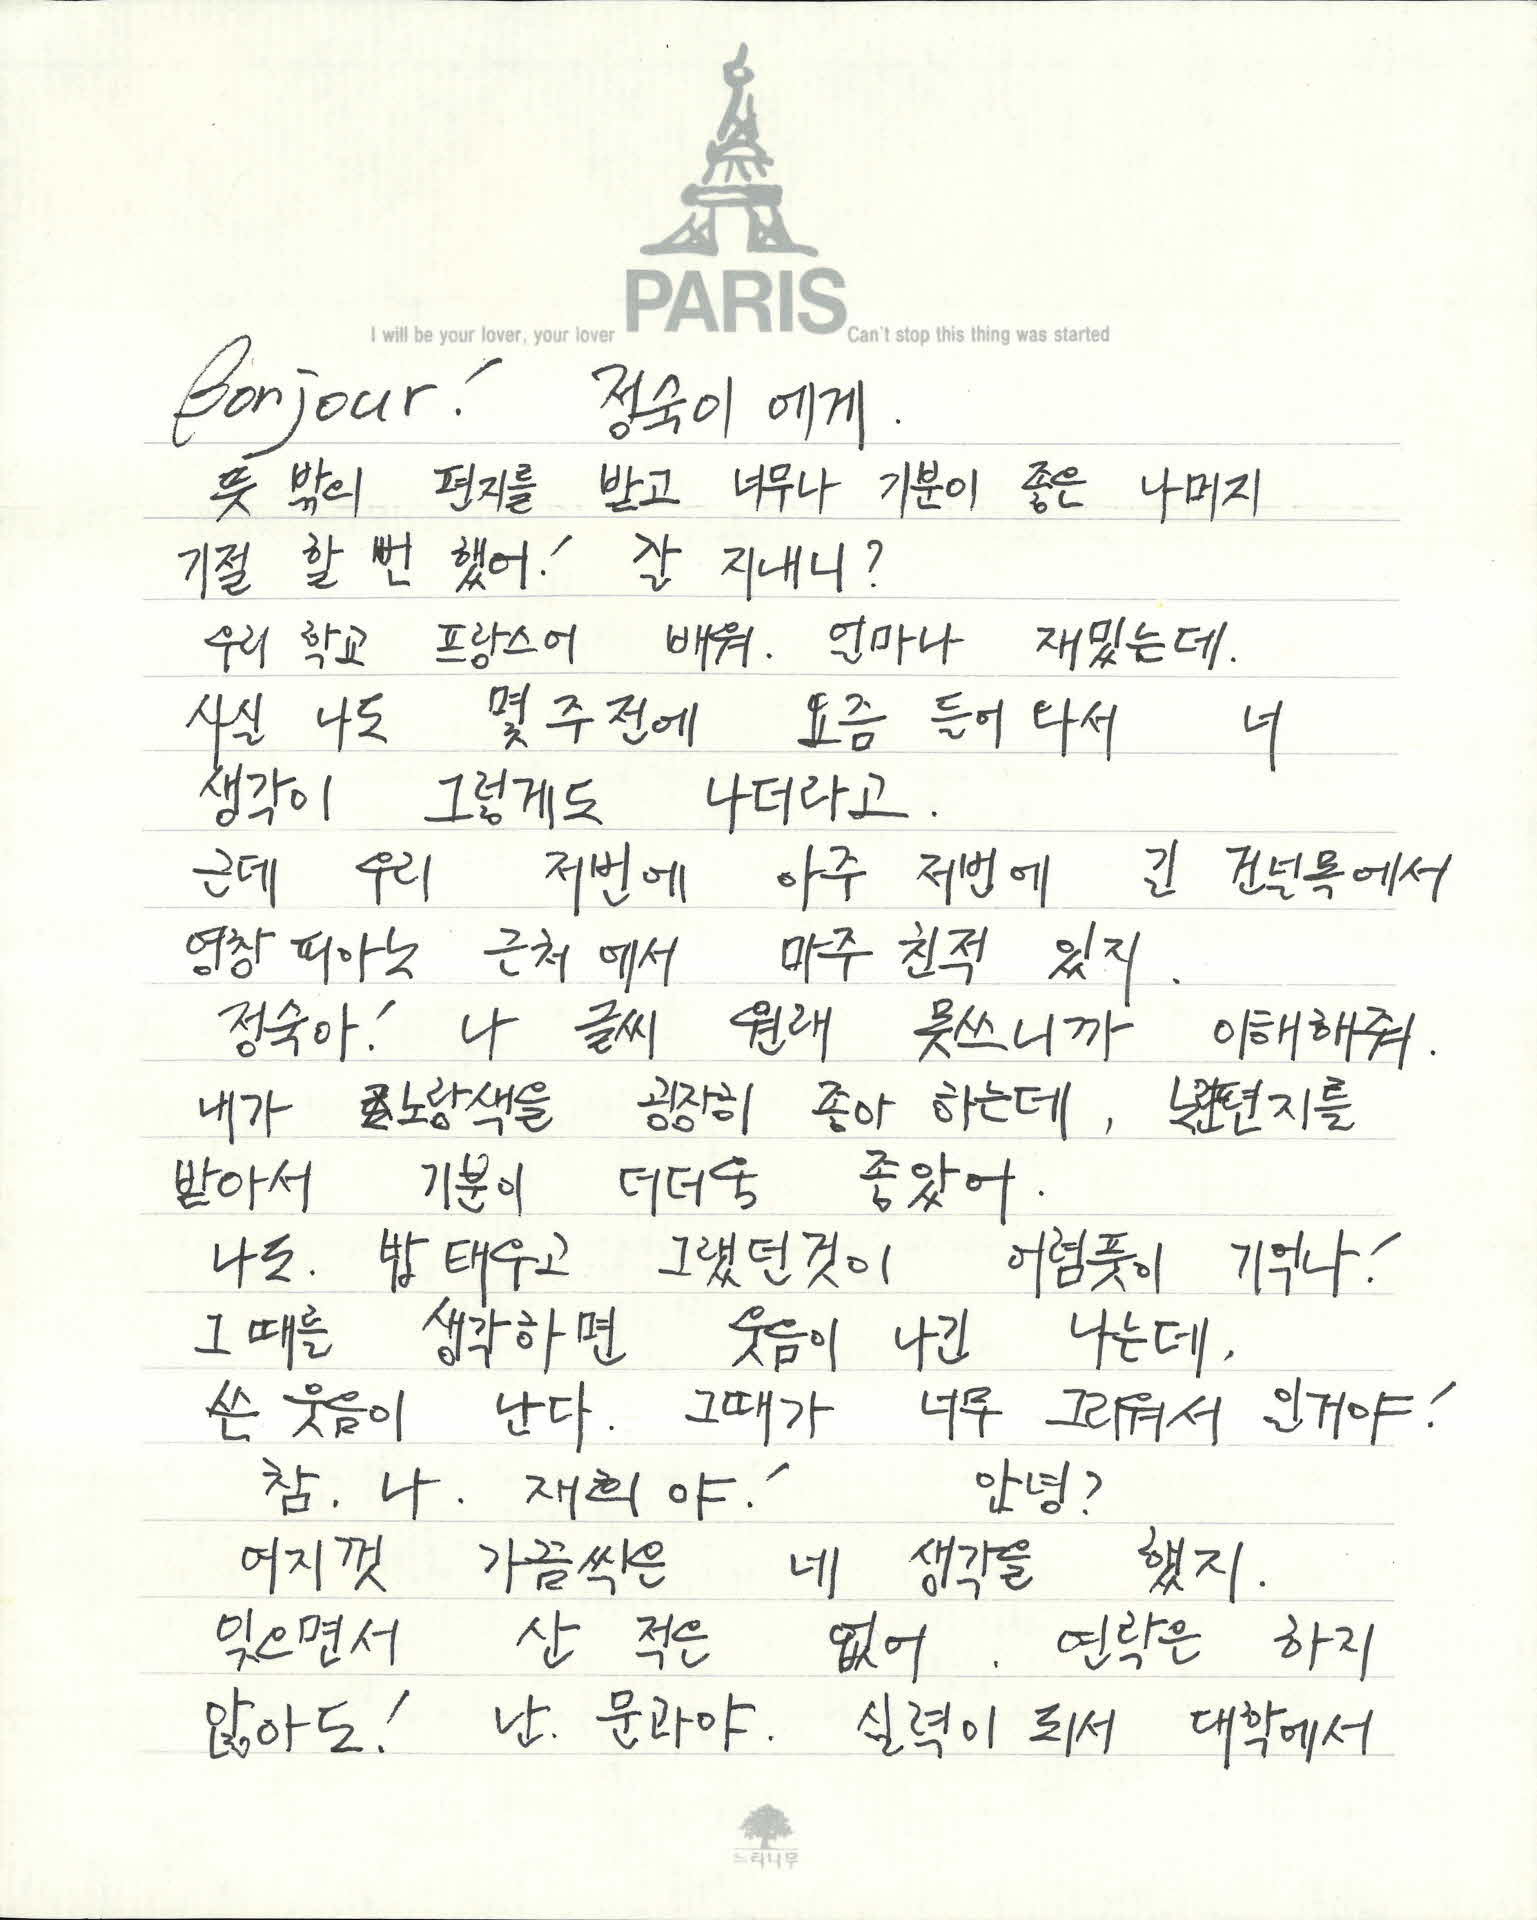 PARIS
I will be your lover, your lover Can't stop this thing was started
Bonjour! 정숙이 에게.
뜻 밖의 편지를 받고 너무나 기분이 좋은 나머지
기절 할 번 했어! 잘 지내니?
우리 학교 프랑스어 배워. 얼마나 재밌는데.
사실 나도 몇 주 전에 요즘 들어 타서 너
생각이 그렇게도 나더라고.
근데 우리 저번에 아주 저번에 긴 건널목에서
영창 피아노 근처 에서 마주 친적 있지.
정숙아! 나 글씨 원래 못쓰니까 이해해줘.
내가 노랑색을 굉장히 좋아 하는데, 편지를
받아서 기분이 더더욱 좋았어.
나도. 밥 태우고 그랬던것이 어렴풋이 기억나!
그 때를 생각하면 웃음이 나긴 나는데,
쓴 웃음이 난다. 그때가 너무 그리워서 인거야!
참. 나. 재희 야! 안녕?
여지껏 가끔씩은 네 생각을 했지.
잊으면서 산 적은 없어. 연락은 하지
않아도! 난. 문과야. 실력이 되서 대학에서
느티나무